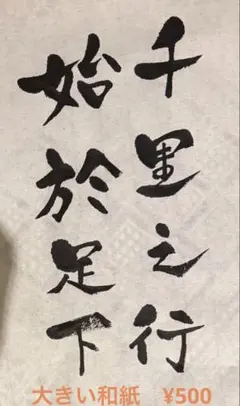 千里之行
始於足下
大きい和紙　¥500